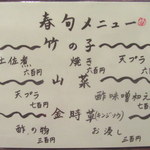 春旬メニュー
竹の子
土佐煮
六百円
焼き
六百円
天プラ
七百円
山菜
天プラ
七百円
酢味噌和え
七百円
金時草(キンジソウ)
酢の物
三百円
お浸し
三百円